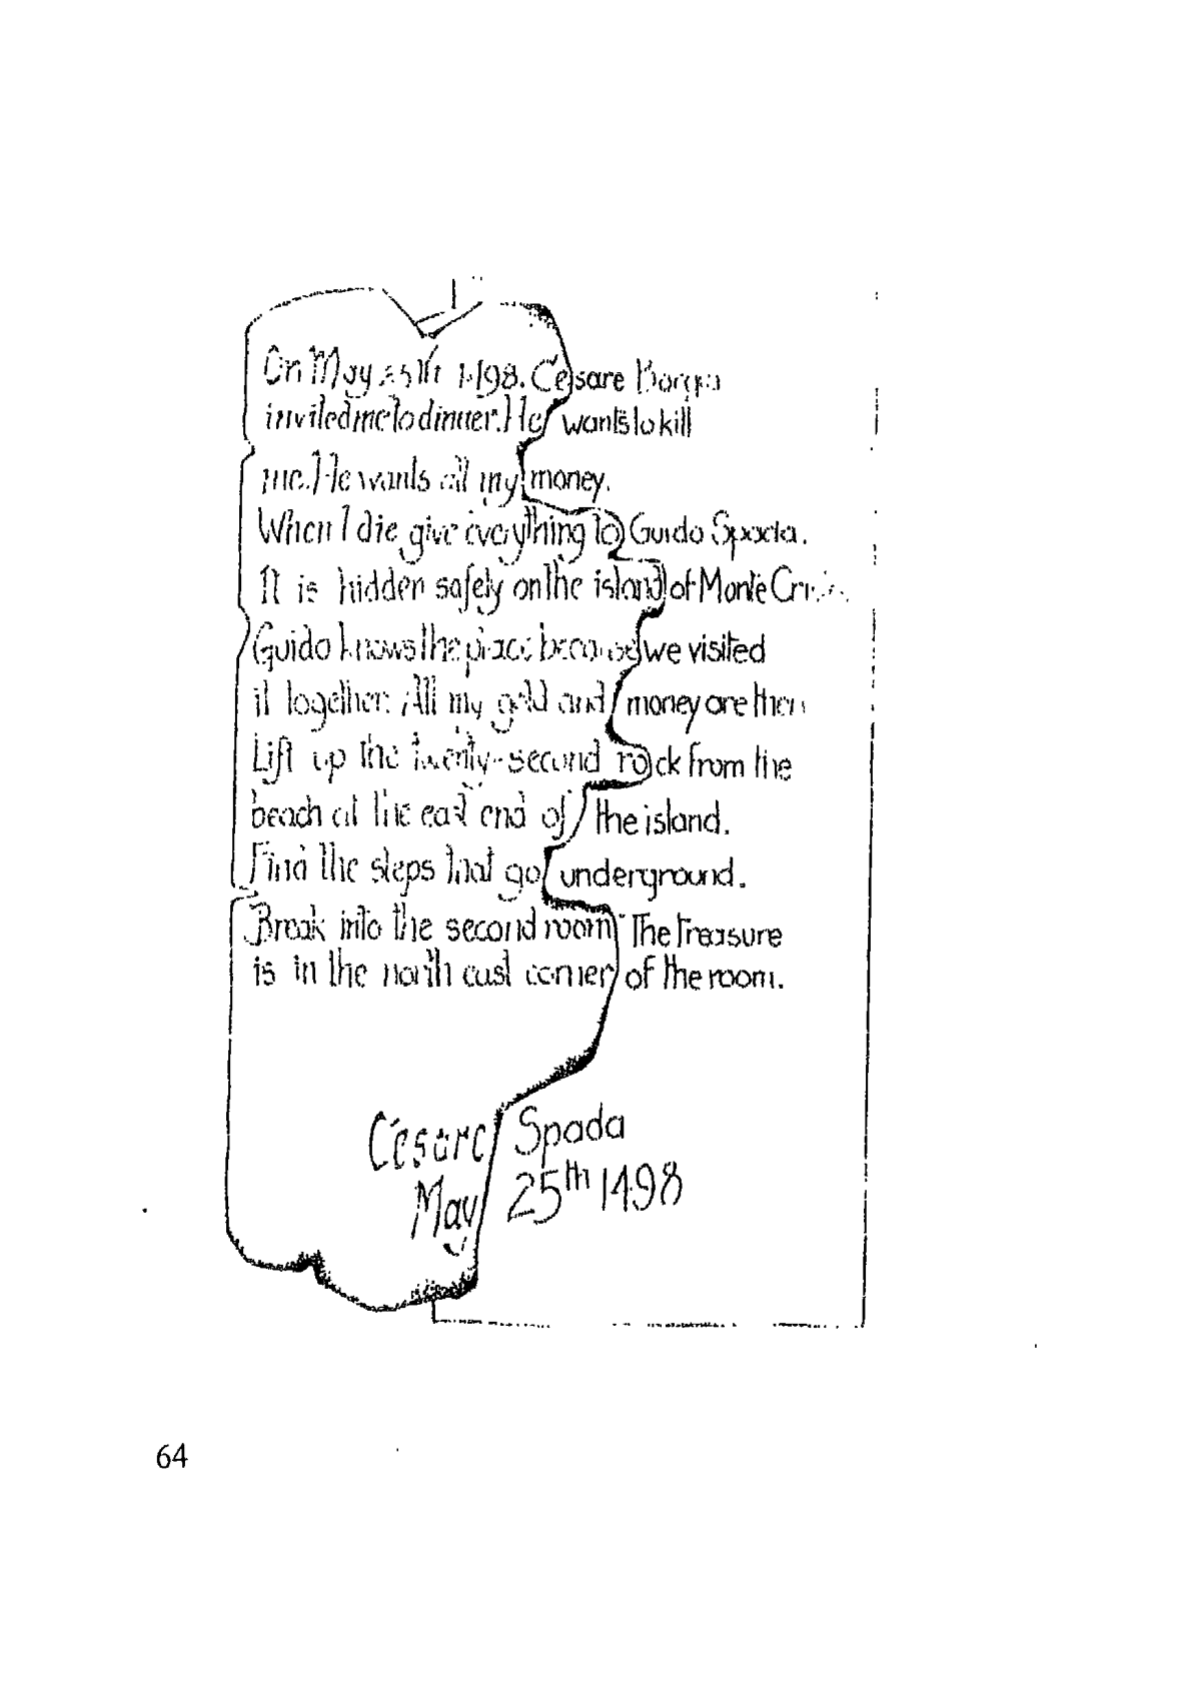 On May 25th 1498. Cesare Borgia
invited me to dinner. He wants to kill
me. He wants all my money.
When I die give everything to Guido Spada.
It is hidden safely on the island of Monte
Guido knows the place because we visited
it together. All my gold and money are
Lift up the twenty-second rock from the
beach at the east end of the island.
Find the steps that go underground.
Break into the second room. The treasure
is in the north east corner of the room.
Cesare Spada
May 25th 1498
64